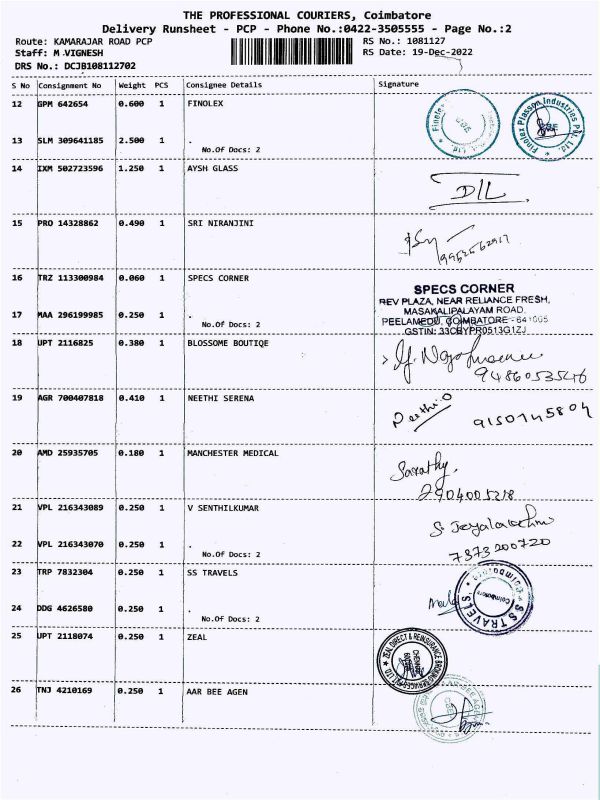 THE PROFESSIONAL COURIERS, Coimbatore
Delivery Runsheet - PCP - Phone No.:0422-3505555 - Page No.:2
Route: KAMARAJAR ROAD PCP
RS No.: 1081127
Staff: M VIGNESH
RS Date: 19-Dec-2022
DRS No.: DCJB108112702
S No Consignment No Weight PCS Consignee Details Signature
12 GPM 642654 0.600 1 FINOLEX
Finolex Plasson Industries Pvt. Ltd.
13 SLM 309641185 2.500 1 .
No.Of Docs: 2
14 IXM 502723596 1.250 1 AYSH GLASS
D/L
15 PRO 14328862 0.490 1 SRI NIRANJINI
16 TRZ 113300984 0.060 1 SPECS CORNER
SPECS CORNER
REV PLAZA, NEAR RELIANCE FRESH,
MASAKALIPALAYAM ROAD,
PEELAMEDU, COIMBATORE - 641005
GSTIN: 33CBYPR0513G1ZJ
17 MAA 296199985 0.250 1 .
No.Of Docs: 2
18 UPT 2116825 0.380 1 BLOSSOME BOUTIQE
9486053546
19 AGR 700407818 0.410 1 NEETHI SERENA
Neethi.O 9150745804
20 AMD 25935705 0.180 1 MANCHESTER MEDICAL
Sarathy.
2904005218
21 VPL 216343089 0.250 1 V SENTHILKUMAR
S. Jeyalakshmi
7373200720
22 VPL 216343070 0.250 1 .
No.Of Docs: 2
23 TRP 7832304 0.250 1 SS TRAVELS
SS TRAVELS
Coimbatore
24 DDG 4626580 0.250 1 .
No.Of Docs: 2
25 UPT 2118074 0.250 1 ZEAL
26 TNJ 4210169 0.250 1 AAR BEE AGEN